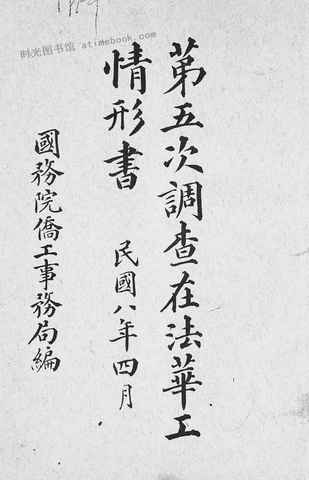 时光图书馆 atimebook.com
第五次調查在法華工
情形書
民國八年四月
國務院僑工事務局編